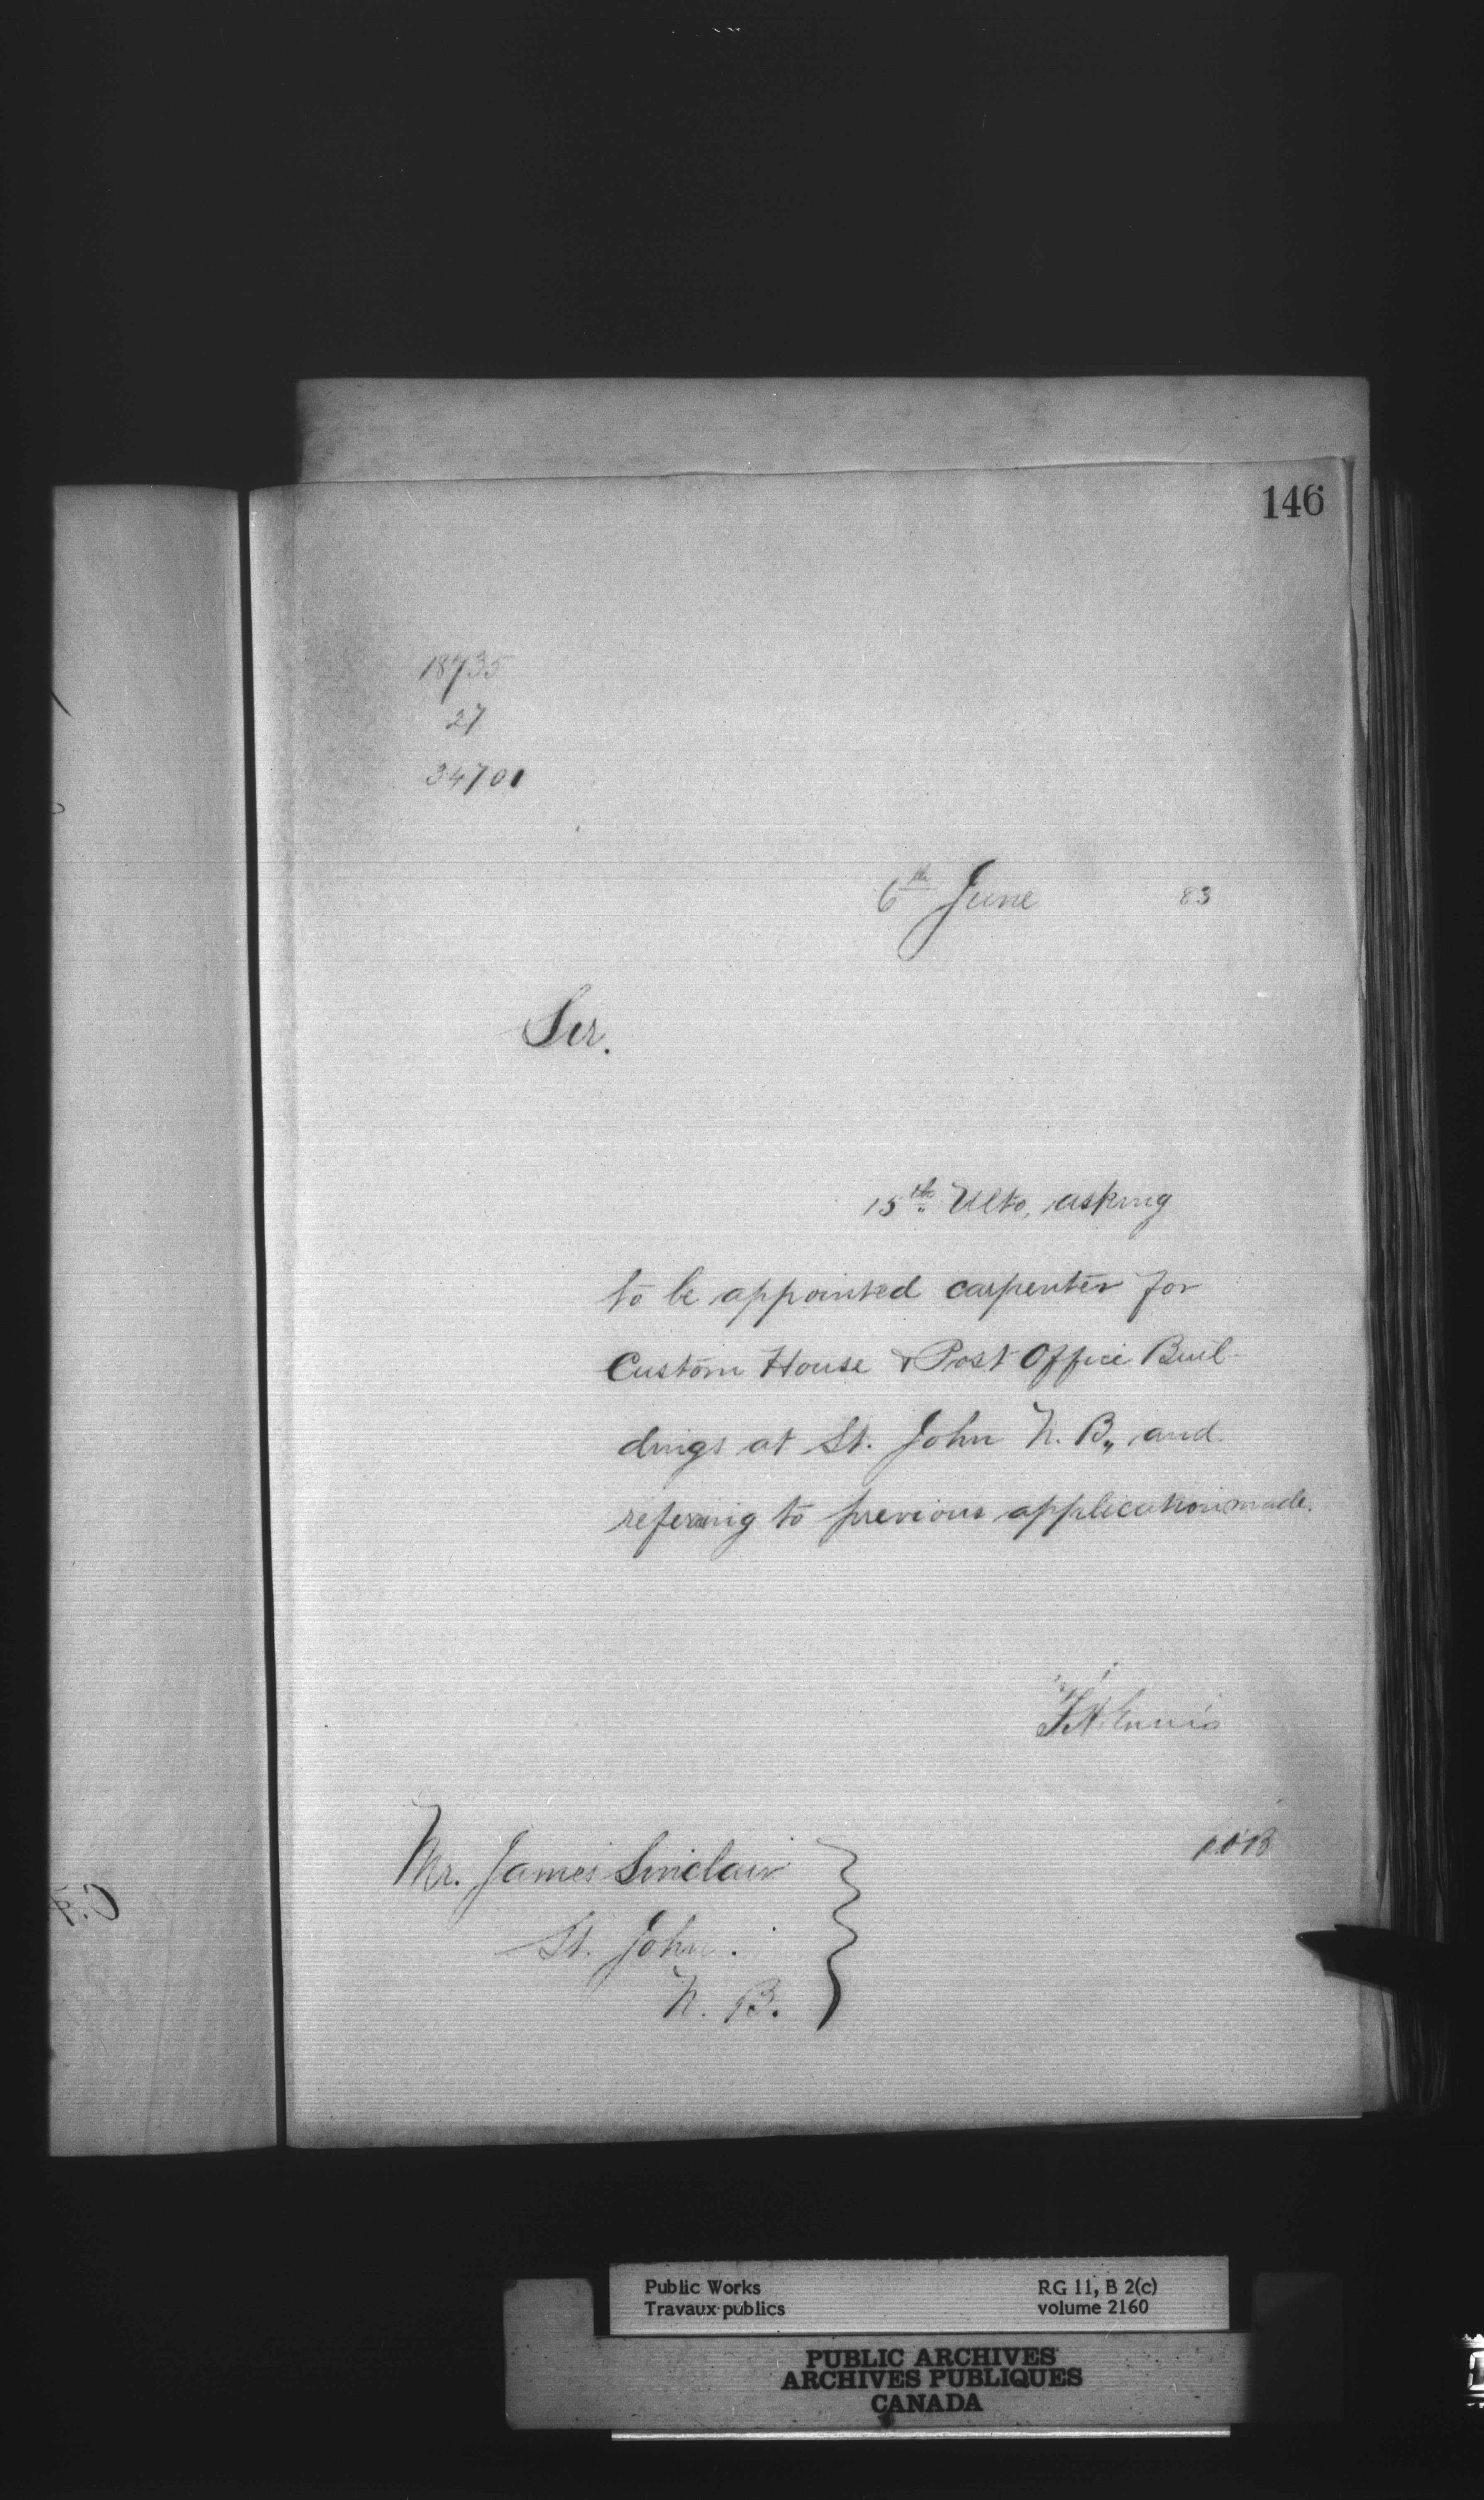 146
18735
27
34701
6th June 83
Sir.
15th Ulto, asking
to be appointed carpenter for
Custom House & Post Office Buil-
dings at St. John N. B., and
refering to previous application made.
F.H. Ennis
Mr. James Sinclair
St. John.
N. B.
Public Works
Travaux publics
RG 11, B 2(c)
volume 2160
PUBLIC ARCHIVES
ARCHIVES PUBLIQUES
CANADA